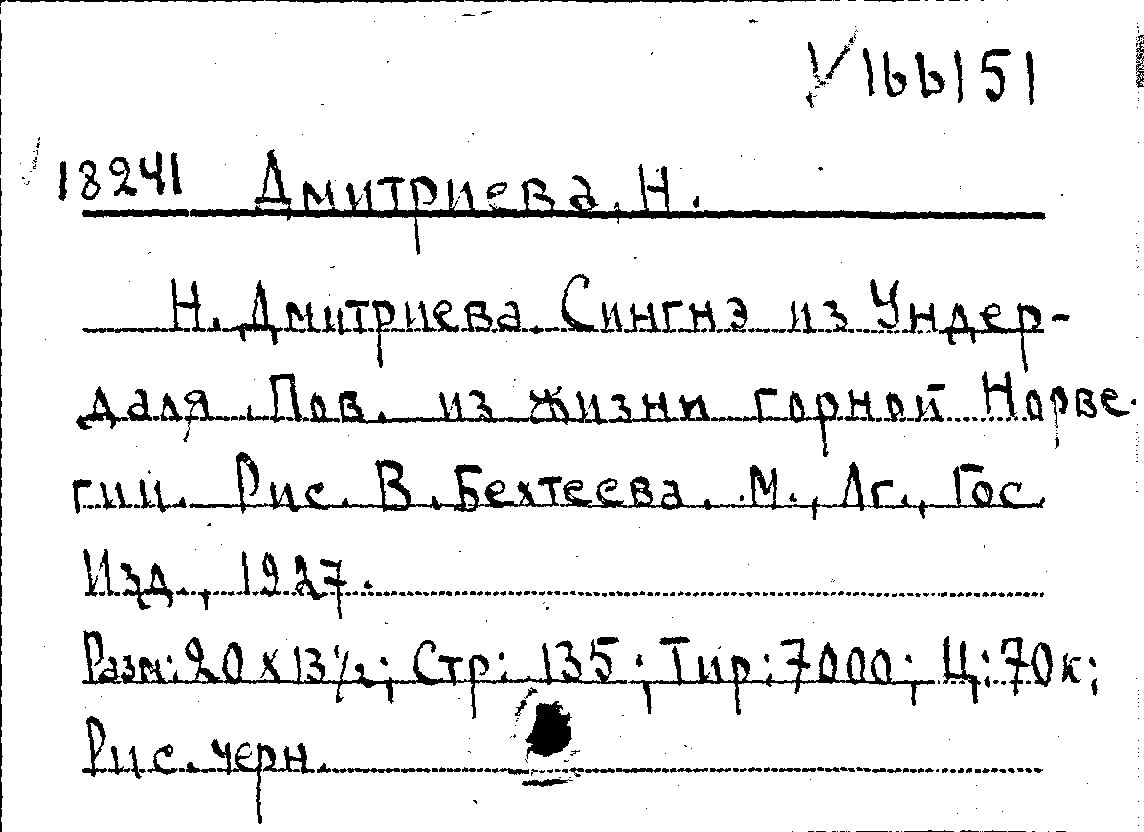 V 166151
18241 Дмитриева, Н.
Н. Дмитриева. Сингнэ из Ундер-
даля. Пов. из жизни горной Норве-
гии. Рис. В. Бехтеева. М., Лг., Гос.
Изд., 1927.
Разм: 20 х 13½; Стр: 135; Тир: 7000; Ц: 70к;
Рис. черн.